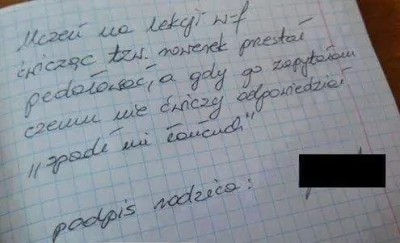 Uczeń na lekcji w-f
ćwicząc tzw. rowerek przestał
pedałować, a gdy go zapytałam
czemu nie ćwiczy odpowiedział
„spadł mi łańcuch"
podpis rodzica: